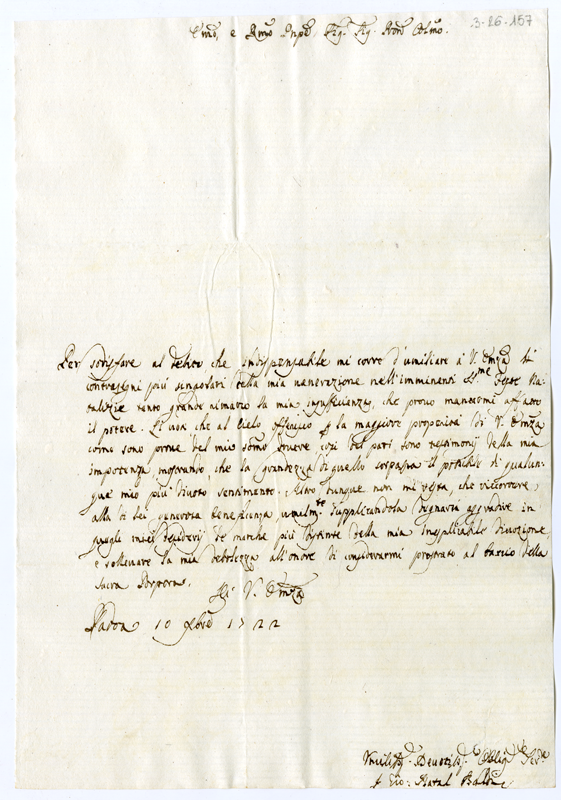 3-26-157
Emo, e Rmo Pnpe, Sig. Sig. Pron Colmo.
Per sodisfare al debito che indispensabile mi corre d'umiliare à V. Emza li
contrasegni più singolari della mia uenerazione nell'imminenti SSme Feste Na-
talizie tanto grande rimarco la mia insufficienza, che prouo mancarmi affatto
il potere. I uoti che al Cielo offerisco p la maggiore prosperità di V. Emza
come sono proprie del mio douere, così del pari sono testimonij della mia
impotenza, mentre che la grandezza di quello sorpassa il possibile di qualun-
que mio più diuoto sentimento. Altro dunque non mi resta, che ricorrere
alla di lei generosa beneficenza, umilmte supplicandola degnarsi aggradire in
questi miei desiderij le marche più distinte della mia inesplicabile diuozione,
e solleuare la mia debolezza all'onore di considerarmi prostrato al baccio della
Sacra Porpora.
Di V. Emza
Padoa 10 Xbre 1722
Vmiliss. Deuotiss. Obligmo Serre
Gio: Natal